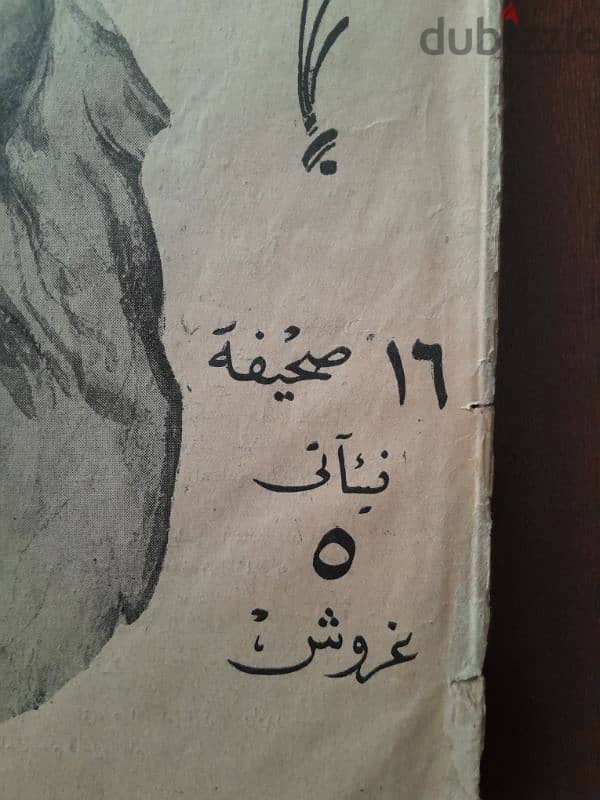 dubizzle
١٦ صحيفة
فيئآتى
٥
غروش